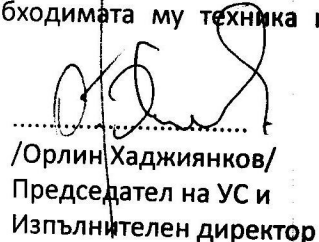 бходимата му техника
........................................
/Орлин Хаджиянков/
Председател на УС и
Изпълнителен директор